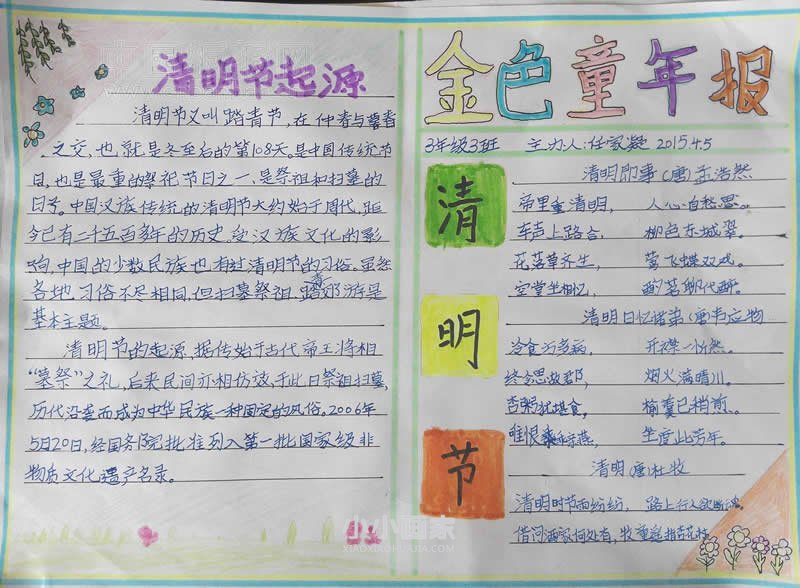 清明节起源
清明节又叫踏青节，在仲春与暮春
之交，也就是冬至后的第108天。是中国传统节
日，也是最重的祭祀节日之一、是祭祖和扫墓的
日子。中国汉族传统的清明节大约始于周代，距
今已有二千五百多年的历史，受汉族文化的影
响，中国的少数民族也有过清明节的习俗。虽然
各地习俗不尽相同，但扫墓祭祖、踏青郊游是
基本主题。
清明节的起源，据传始于古代帝王将相
“墓祭”之礼，后来民间亦相仿效，于此日祭祖扫墓，
历代沿袭而成为中华民族一种固定的风俗。2006年
5月20日，经国务院批准列入第一批国家级非
物质文化遗产名录。
金色童年报
3年级3班 主力人：任家凝 2015.4.5
清
明
节
清明即事（唐）孟浩然
帝里重清明， 人心自愁思。
车声上路合， 柳色东城翠。
花落草齐生， 莺飞蝶双戏。
空堂坐相忆， 酌茗聊代醉。
清明日忆诸弟（唐韦应物
冷食方多病， 开襟一忻然。
终令思故郡， 烟火满晴川。
杏粥犹堪食， 榆羹已稍煎。
唯恨乖亲燕， 坐度此芳年。
清明 唐 杜牧
清明时节雨纷纷， 路上行人欲断魂。
借问酒家何处有，牧童遥指杏花村
小小画家
XIAOXIAOHUAJIA.COM